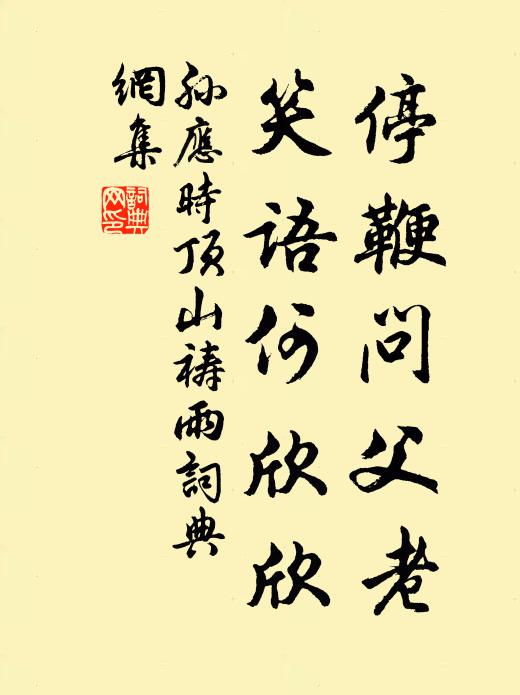 停鞭問父老
笑語何欣欣
孫應時頂山禱雨詞典
網集
詞典
网印